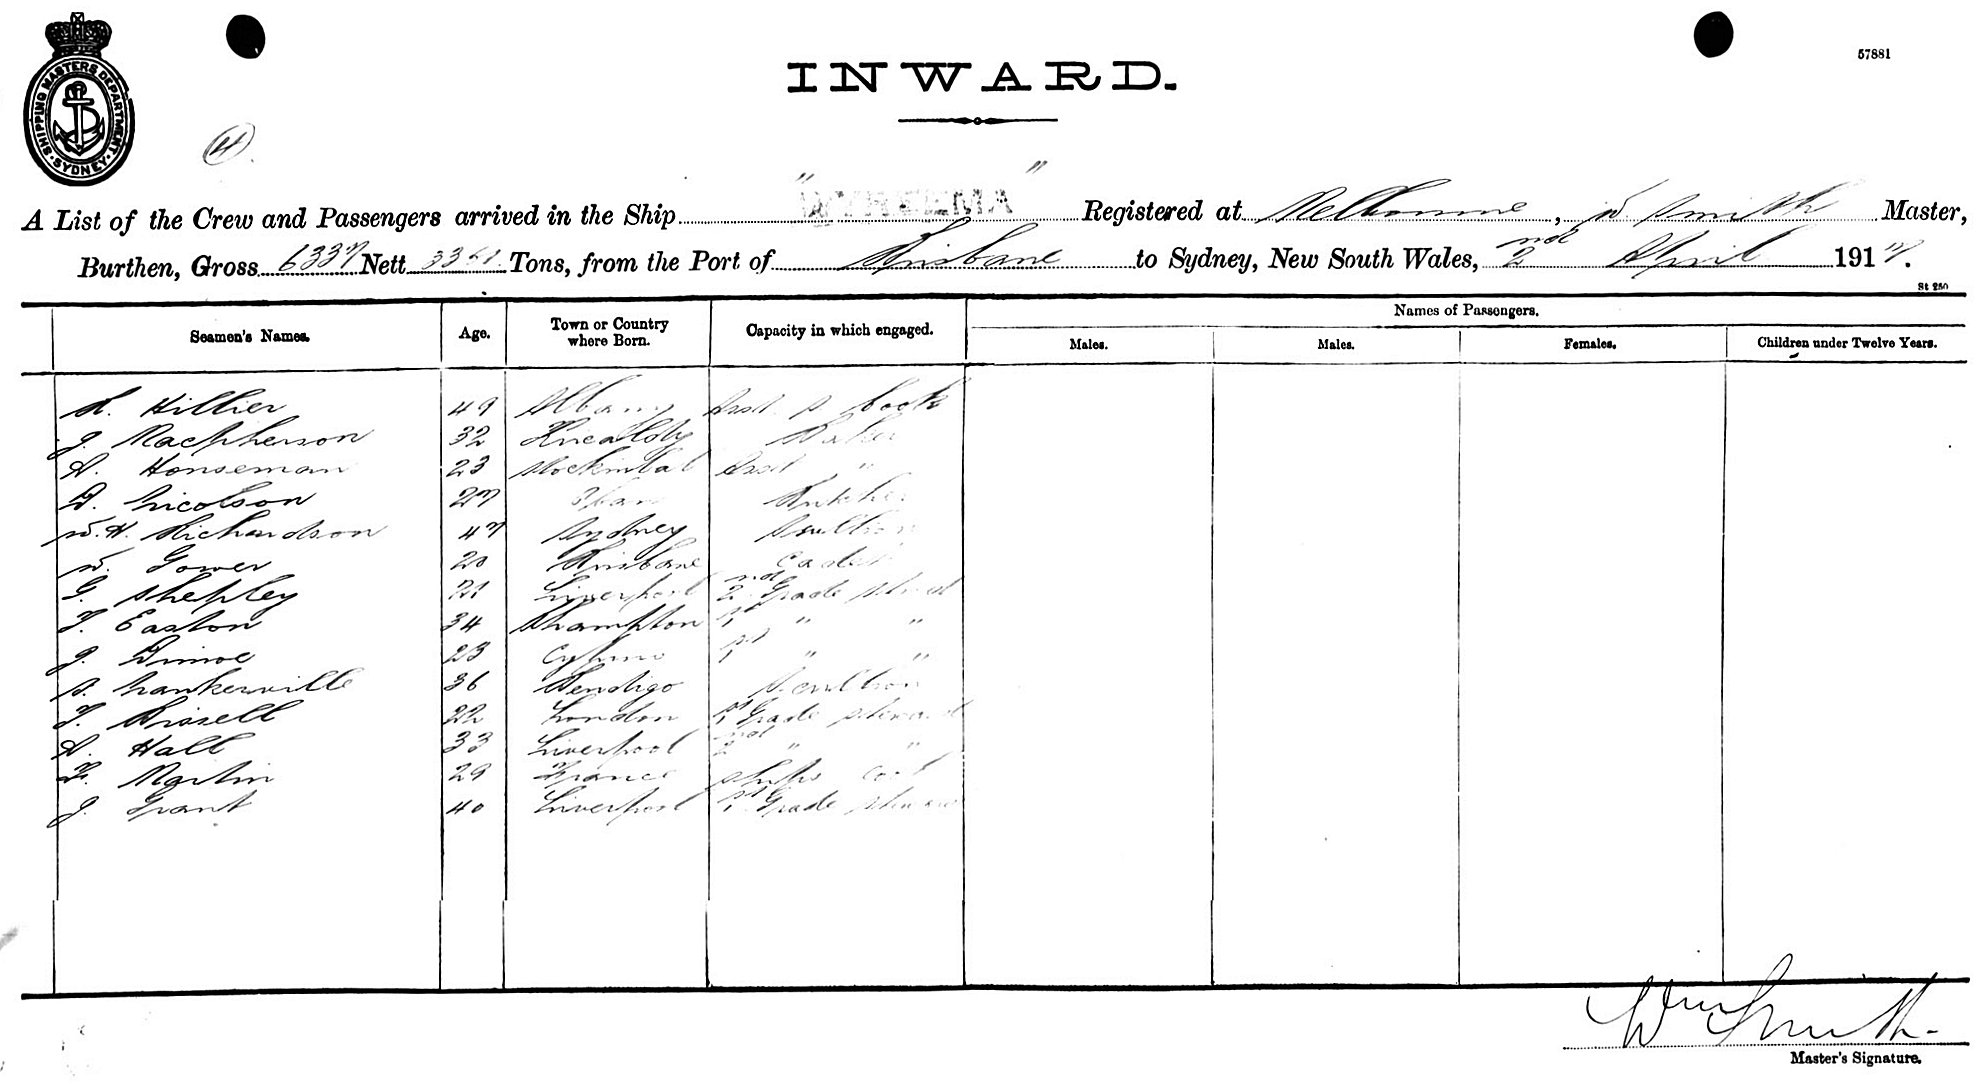 57881
SHIPPING MASTERS DEPARTMENT SYDNEY
INWARD.
A List of the Crew and Passengers arrived in the Ship " " Registered at Melbourne, W. Smith Master,
Burthen, Gross 6337 Nett 3361 Tons, from the Port of Brisbane to Sydney, New South Wales, 2nd April 1917.
St 250
Seamen's Names. Age. Town or Country where Born. Capacity in which engaged. Names of Passengers.
Males. Males. Females. Children under Twelve Years.
Hillier 49 Albany Asst. S. Cook
J. Macpherson 32 Kircaldy Baker
Honseman 23 Asst "
D. Nicolson 27 Butcher
W. H. Richardson 47 Sydney Scullion
W. Gower 20 Brisbane Cadet
G. Shepley 21 Liverpool 2nd Grade Steward
T. Easton 34 Shampton 1st " "
J. 23 1st " "
S. Nankerville 36 Bendigo Scullion
T. Bissell 22 London 1st Grade Steward
A. Hall 33 Liverpool 2nd " "
Martin 29 France Ships Cook
J. Grant 40 Liverpool 1st Grade Steward
Wm Smith
Master's Signature.